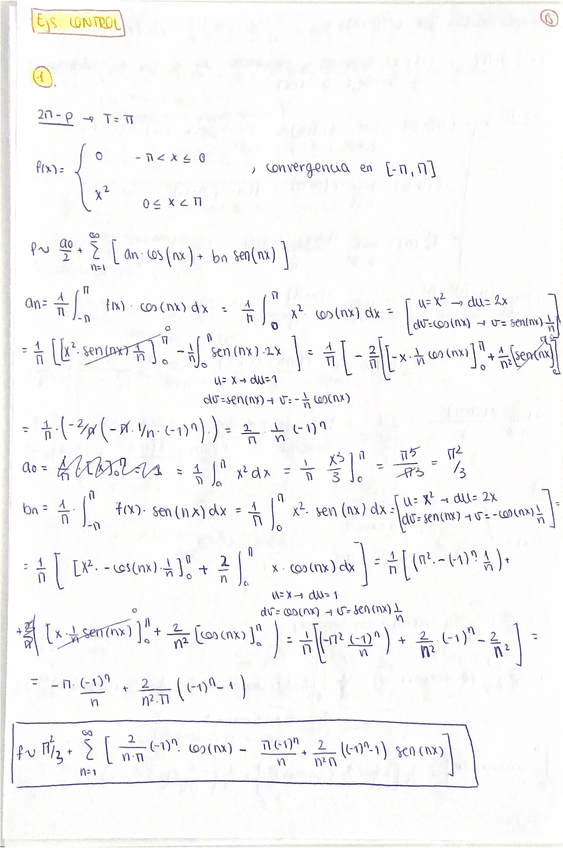 Ejs CONTROL
1.
2π-p → T = π
f(x) = { 0 -π < x ≤ 0
x² 0 ≤ x < π , convergencia en [-π, π]
f ~ a0/2 + ∑_{n=1}^{∞} [ an · cos(nx) + bn sen(nx) ]
an = 1/π ∫_{-π}^{π} f(x) · cos(nx) dx = 1/π ∫_0^π x² cos(nx) dx = [ u = x² → du = 2x
dv = cos(nx) → v = sen(nx) 1/n ]
= 1/π [ [x² · sen(nx) 1/n]_0^π - 1/n ∫_0^π sen(nx) · 2x ] = 1/π [ - 2/n [[-x · 1/n cos(nx)]_0^π + 1/n² [sen(nx)]
u = x → du = 1
dv = sen(nx) → v = - 1/n cos(nx)
= 1/π · (-2/n (-π · 1/n · (-1)^n) · ) = 2/n · 1/n (-1)^n
a0 = = 1/π ∫_0^π x² dx = 1/π x³/3 ]_0^π = π³/π3 = π²/3
bn = 1/π · ∫_{-π}^{π} f(x) · sen(nx) dx = 1/π ∫_0^π x² · sen(nx) dx = [ u = x² → du = 2x
dv = sen(nx) → v = -cos(nx) 1/n ] =
= 1/π [ [x² · -cos(nx) · 1/n]_0^π + 2/n ∫_0^π x · cos(nx) dx ] = 1/π [ (π² · -(-1)^n · 1/n) +
u = x → du = 1
dv = cos(nx) → v = sen(nx) 1/n
+ 2/n [ [x · 1/n sen(nx)]_0^π + 2/n² [cos(nx)]_0^π ) = 1/π [(-π² (-1)^n/n) + 2/n² · (-1)^n - 2/n² ] =
= -π · (-1)^n/n + 2/n²·π ((-1)^n - 1)
f ~ π²/3 + ∑_{n=1}^{∞} [ 2/n·n (-1)^n · cos(nx) - π(-1)^n/n + 2/n²π ((-1)^n - 1) sen(nx) ]